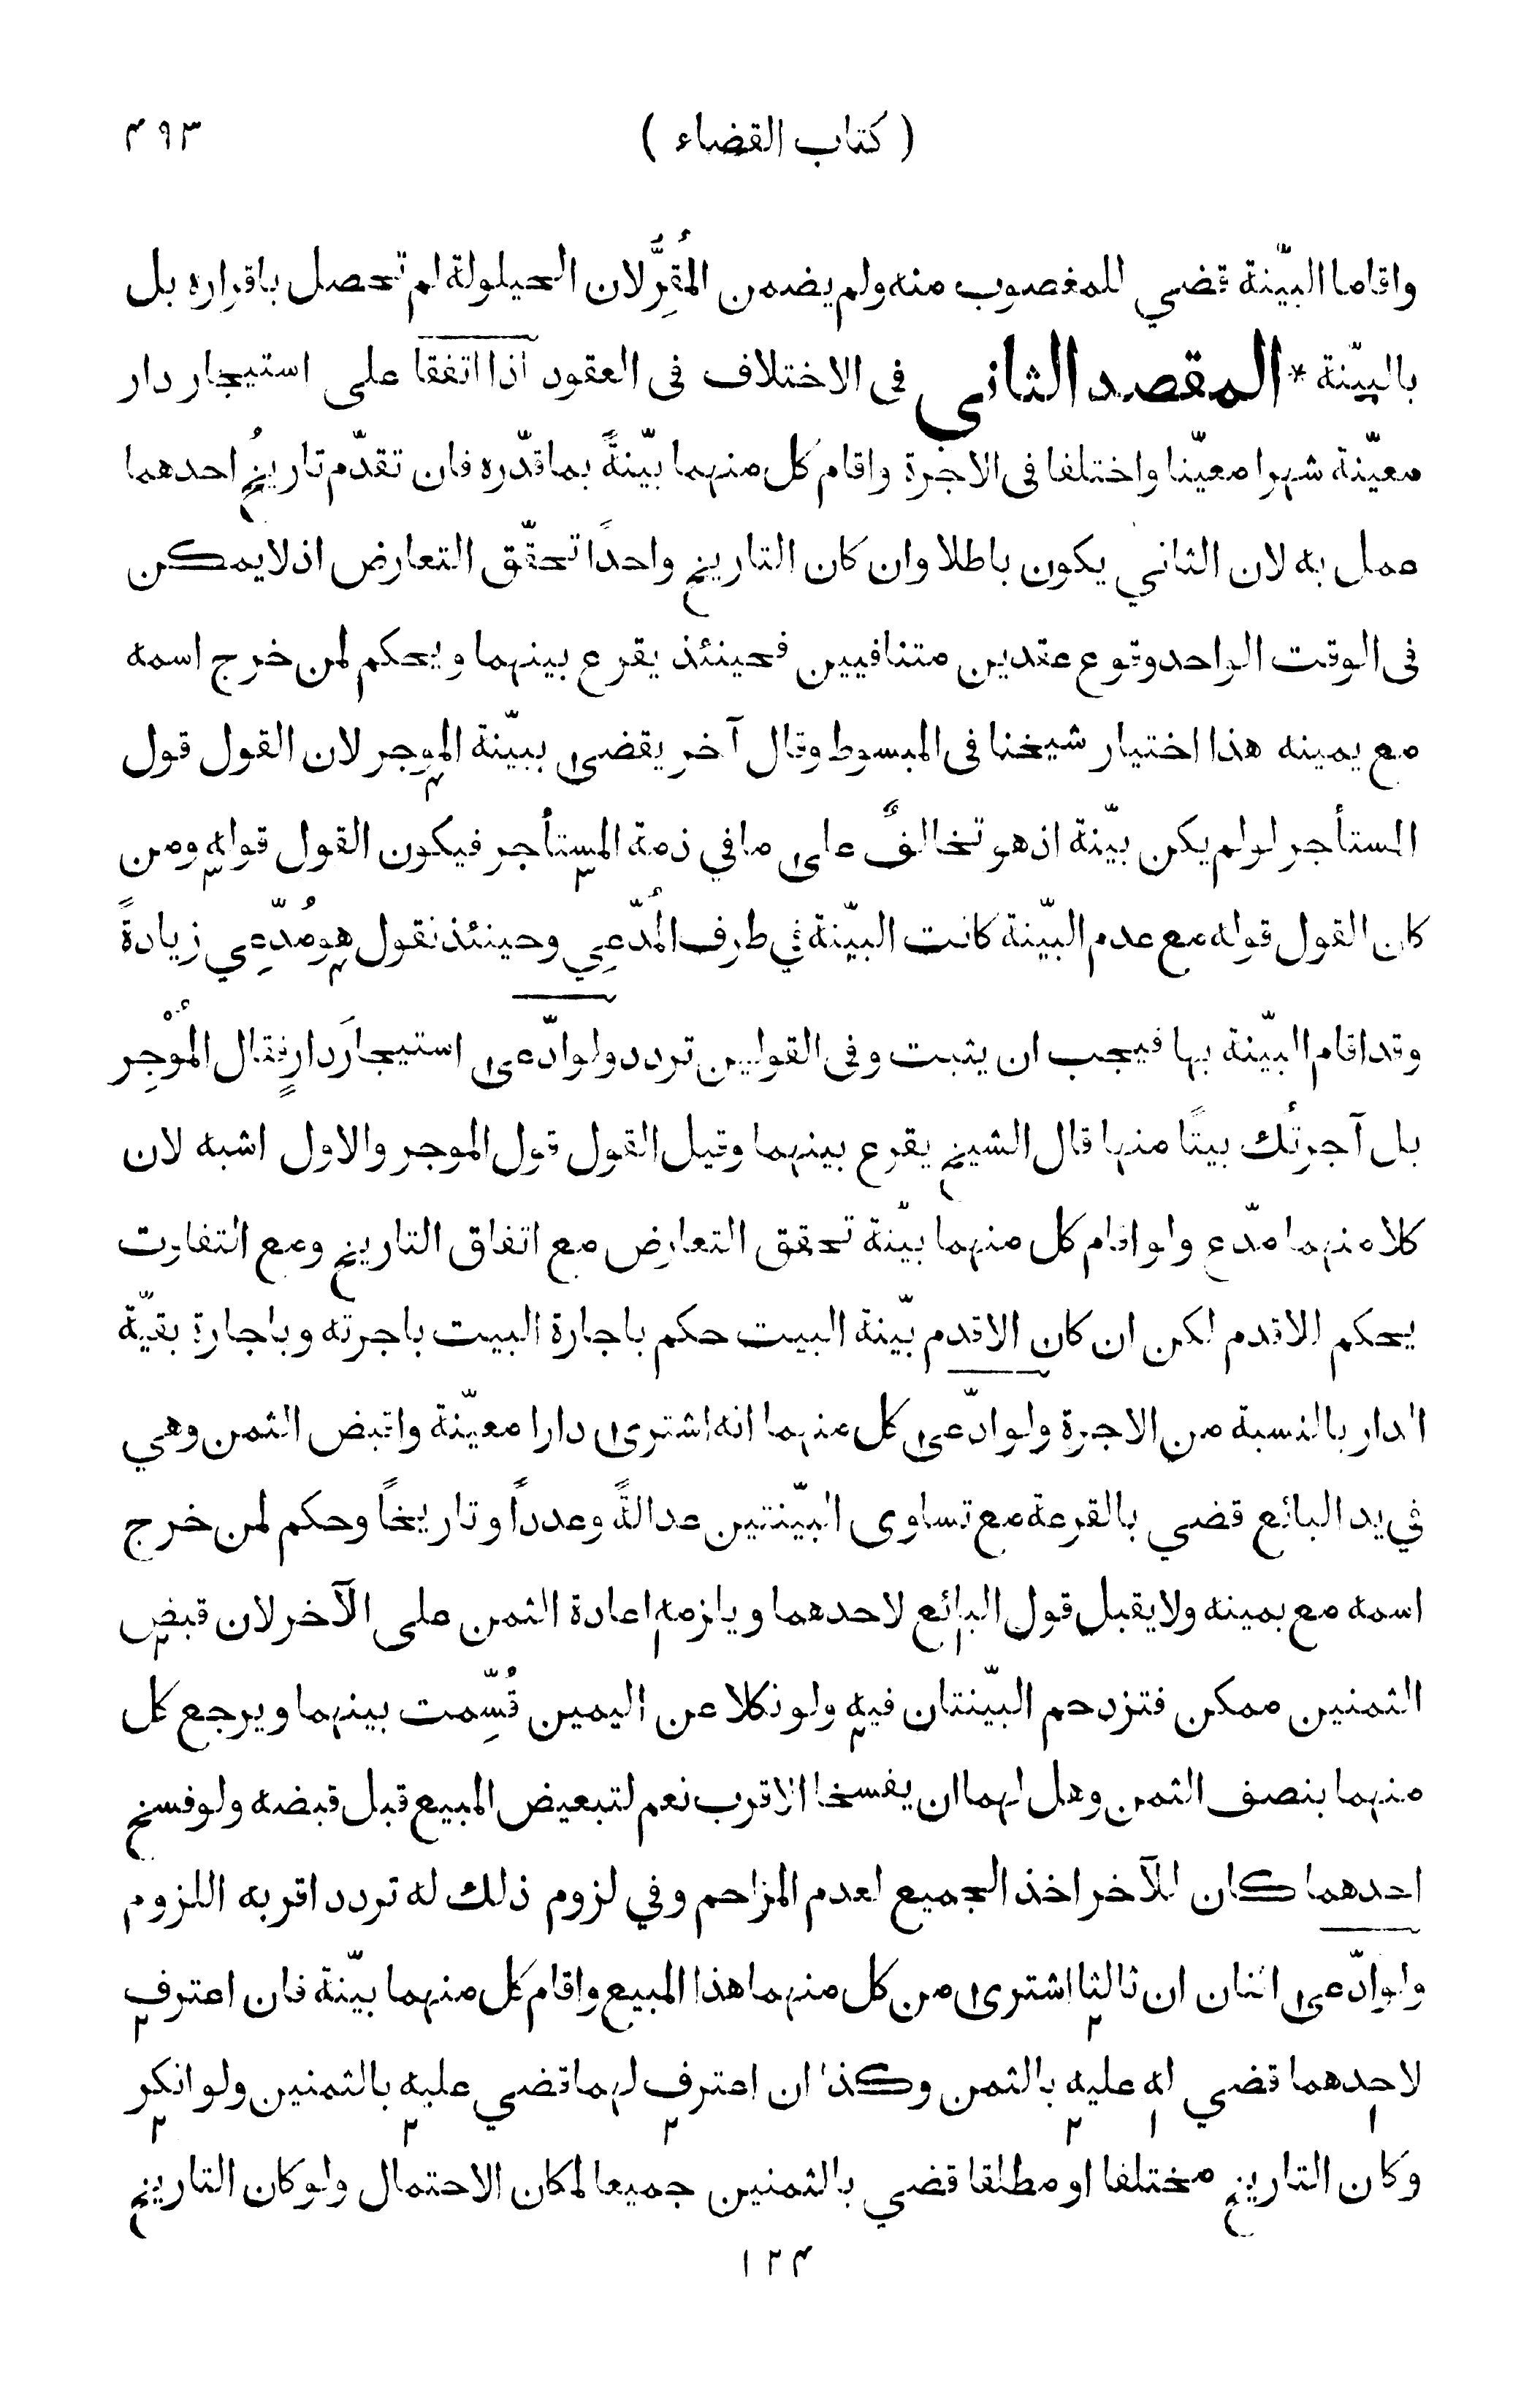 ( كتاب القضاء ) ٤٩٣
واقاما البيّنة قضي للمغصوب منه ولم يضمن المُقِرُّ لان الحيلولة لم تحصل باقراره بل
بالبيّنة * المقصد الثاني فى الاختلاف فى العقود اذا اتفقا على استيجار دار
معيّنة شهرا معيّنا واختلفا فى الاجرة واقام كل منهما بيّنةً بما قدّره فان تقدّم تاريخُ احدهما
عمل به لان الثاني يكون باطلا وان كان التاريخ واحدًا تحقّق التعارض اذ لا يمكن
فى الوقت الواحد وقوع عقدين متنافيين فحينئذ يقرع بينهما ويحكم لمن خرج اسمه
مع يمينه هذا اختيار شيخنا فى المبسوط وقال آخر يقضى ببيّنة الموجر لان القول قول
المستأجر لو لم يكن بيّنة اذ هو تخالفٌ على ما في ذمة المستأجر فيكون القول قوله ومن
كان القول قوله مع عدم البيّنة كانت البيّنة في طرف المُدّعِي وحينئذ نقول هو مُدّعِي زيادةً
وقد اقام البيّنة بها فيجب ان يثبت وفى القولين تردد ولو ادّعى استيجارَ دارٍ فقال المُوْجِر
بل آجرتُك بيتًا منها قال الشيخ يقرع بينهما وقيل القول قول الموجر والاول اشبه لان
كلا منهما مدّع ولو اقام كل منهما بيّنة تحقق التعارض مع اتفاق التاريخ ومع التفاوت
يحكم للاقدم لكن ان كان الاقدم بيّنة البيت حكم باجارة البيت باجرته وباجارة بقيّة
الدار بالنسبة من الاجرة ولو ادّعى كل منهما انه اشترى دارا معيّنة واقبض الثمن وهي
في يد البائع قضي بالقرعة مع تساوى البيّنتين عدالةً وعدداً وتاريخاً وحكم لمن خرج
اسمه مع يمينه ولا يقبل قول البائع لاحدهما ويلزمه اعادة الثمن على الآخر لان قبض
الثمنين ممكن فتزدحم البيّنتان فيه ولو نكلا عن اليمين قُسِّمت بينهما ويرجع كل
منهما بنصف الثمن وهل لهما ان يفسخا الاقرب نعم لتبعيض المبيع قبل قبضه ولو فسخ
احدهما كان للآخر اخذ الجميع لعدم المزاحم وفي لزوم ذلك له تردد اقربه اللزوم
ولو ادّعى اثنان ان ثالثا اشترى من كل منهما هذا المبيع واقام كل منهما بيّنة فان اعترف
لاحدهما قضي له عليه بالثمن وكذا ان اعترف لهما قضي عليه بالثمنين ولو انكر
وكان التاريخ مختلفا او مطلقا قضي بالثمنين جميعا لمكان الاحتمال ولو كان التاريخ
١٢٤